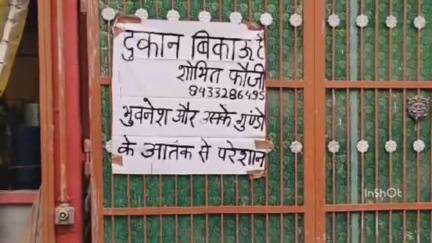 दुकान बिकाऊ है
शोभित फौजी
9433286495
भुवनेश और उसके गुण्डों
के आतंक से परेशान
InShOt